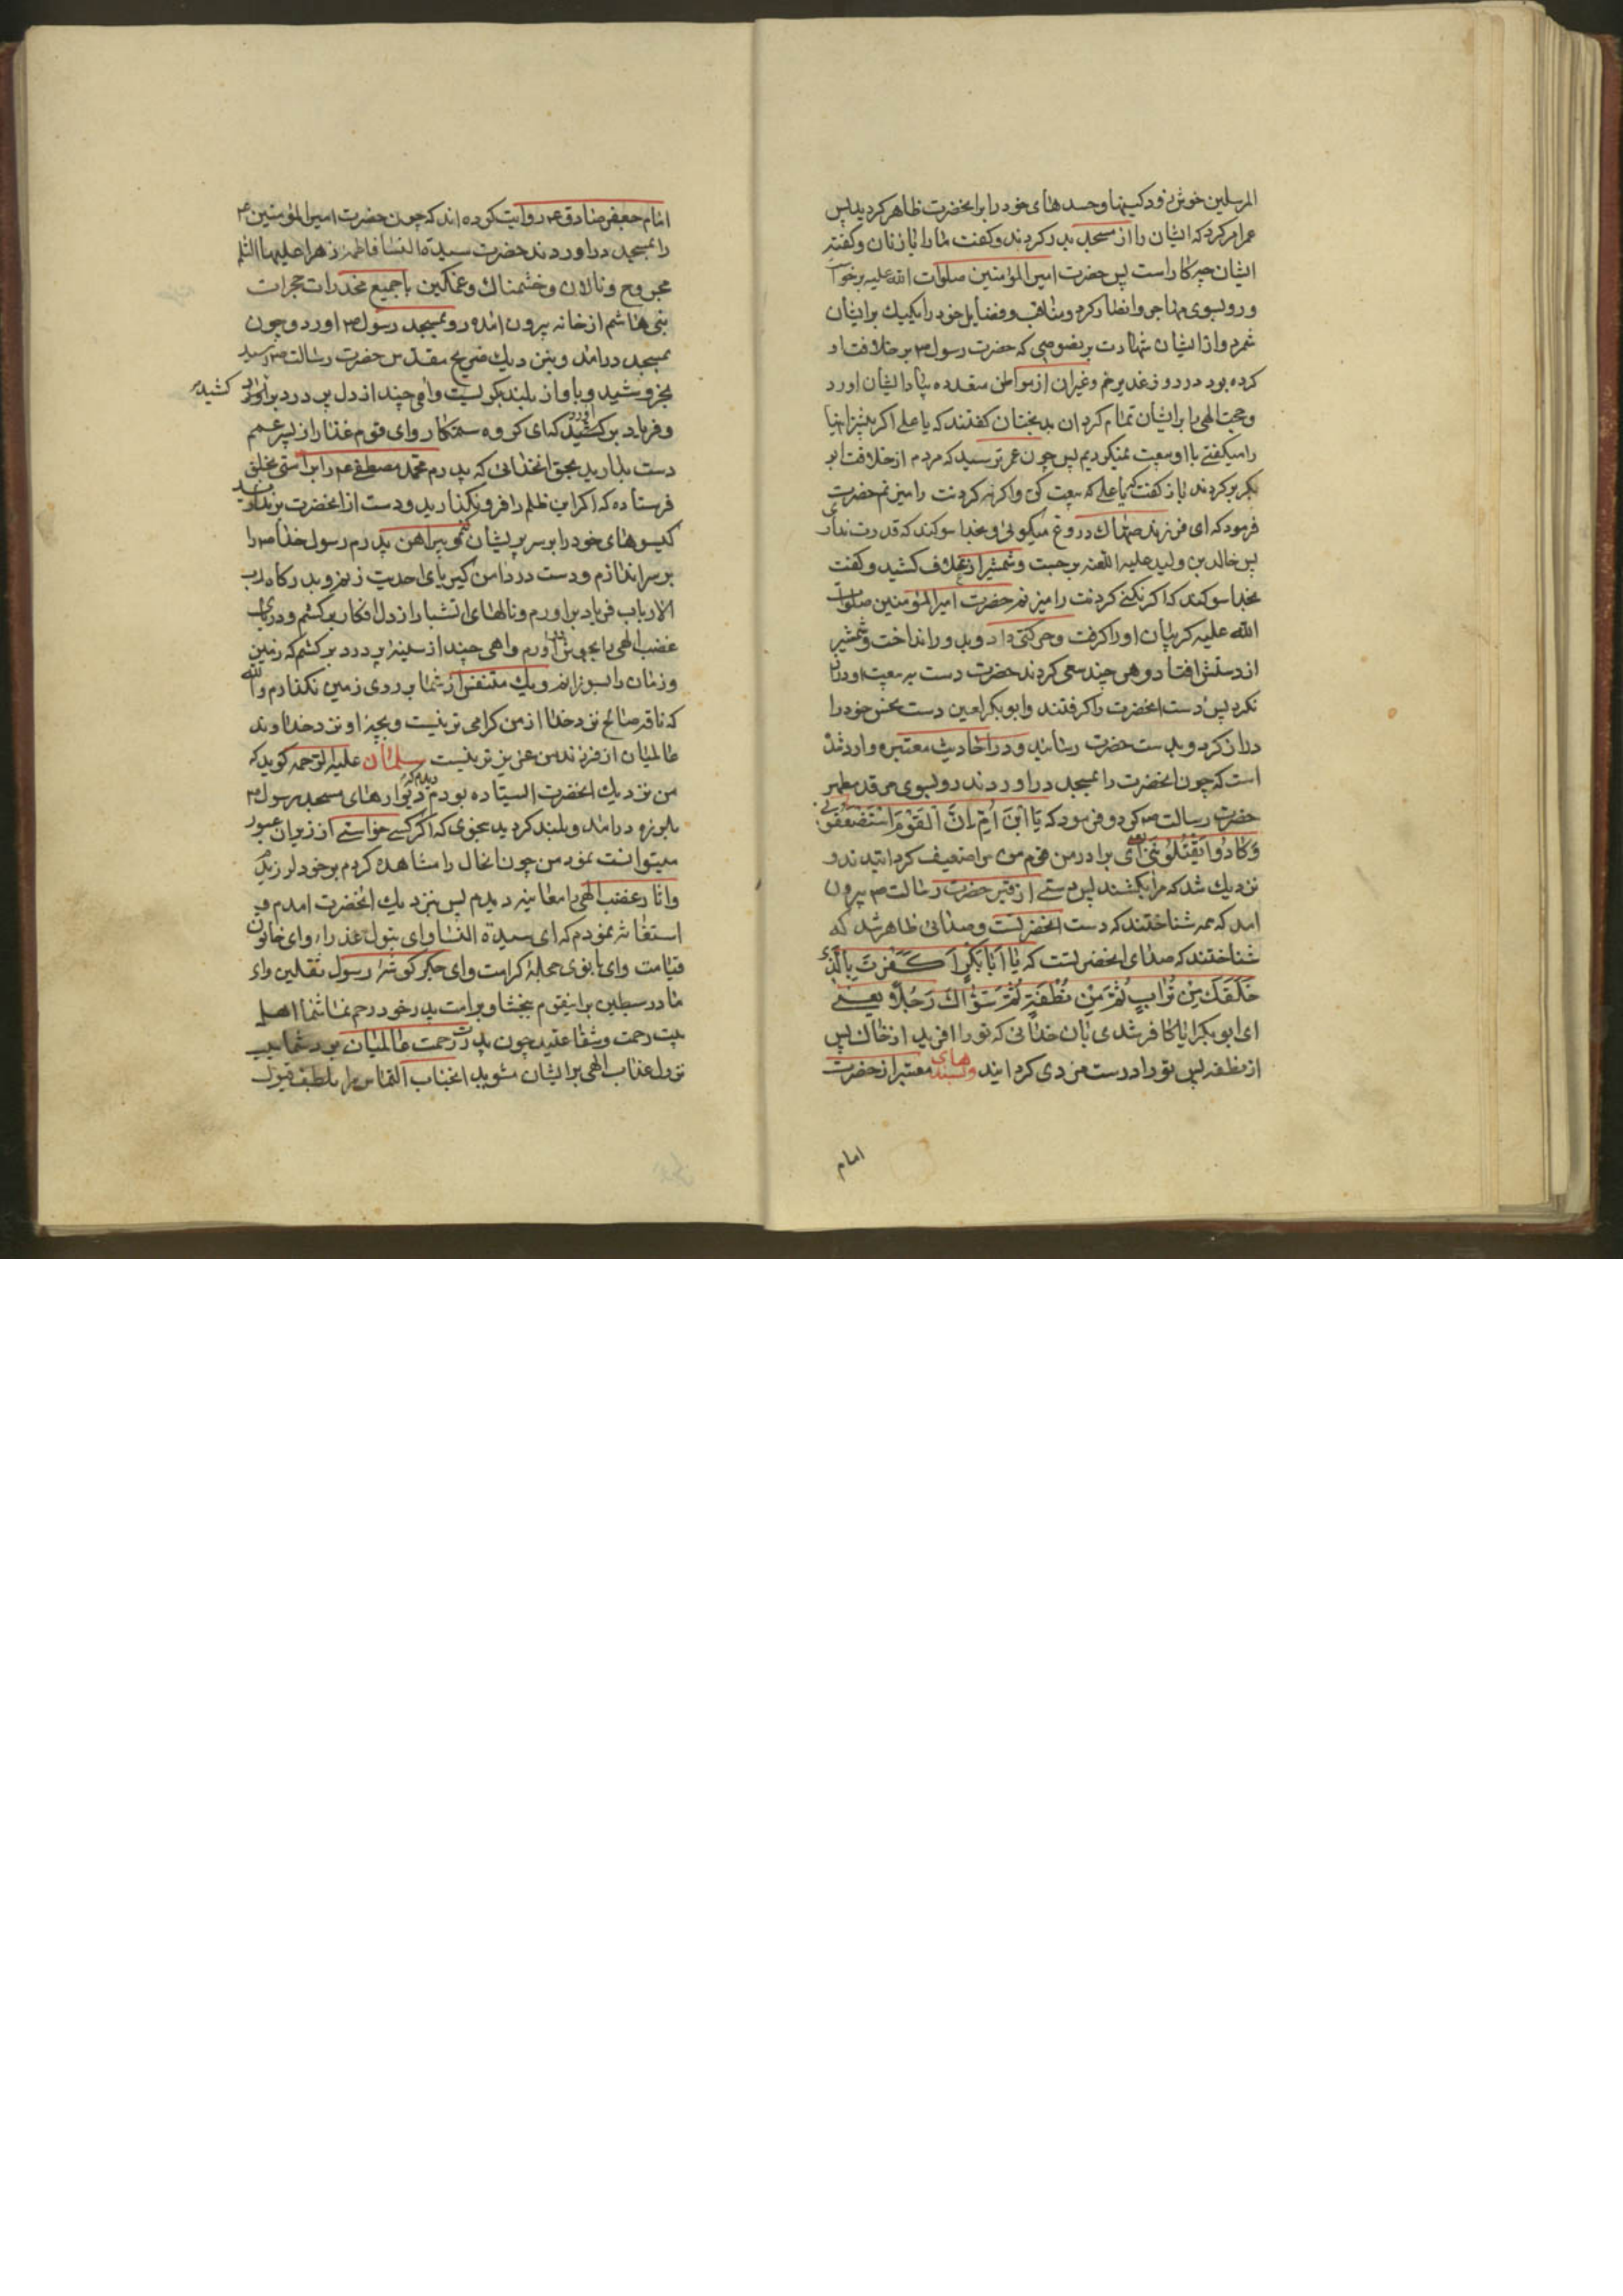 المرسلین خروشی زود کینها و حسدهای خود را بر انحضرت ظاهر کردید پس
عمر امر کرد که ایشان را از مسجد بدر کردند و کفت ما را با زنان و کفته
ایشان چه کار است پس حضرت امیر المؤمنین صلوات الله علیه برخواست
و رو بسوی مهاجر و انصار کرد و مناقب و فضایل خود را یکیک بر ایشان
شمرد و از ایشان شهادت بر نصوصی که حضرت رسول ص بر خلافت او
کرده بود در روز غدیر خم و غیر ان از مواطن متعدده بیاد ایشان اورد
و حجت الهی را بر ایشان تمام کرد ان بدبختان کفتند که یا علی اکر پیشتر اینها
را میکفتی با او بیعت نمیکردیم پس چون عمر ترسید که مردم از خلافت ابو
بکر بر کردند باز کفت که یا علی که بیعت کن و اکر نه کردنت را میزنم حضرت
فرمود که ای فرزند صهاک دروغ میکوئی و بخدا سوکند که قدرت نداری
پس خالد بن ولید علیه اللعنه برجست و شمشیر از غلاف کشید و کفت
بخدا سوکند که اکر نکنی کردنت را میزنم حضرت امیر المؤمنین صلوات
الله علیه کریبان او را کرفت و حرکتی داد و بدور انداخت و شمشیر
از دستش افتاد و هر چند سعی کردند حضرت دست به بیعت او دراز
نکرد پس دست انحضرت را کرفتند و ابو بکر لعین دست نحس خود را
دراز کرد و بدست حضرت رسانید و در احادیث معتبره وارد شده
است که چون انحضرت را بمسجد در اوردند رو بسوی مرقد مطهر
حضرت رسالت ص کرد و فرمود که یَا ابْنَ اُمَّ اِنَّ الْقَوْمَ اسْتَضْعَفُونِي
وَکَادُوا یَقْتُلُونَنِي یعنی ای برادر من قوم من مرا ضعیف کردانیدند و
نزدیک شد که مرا بکشند پس دستی از قبر حضرت رسالت ص بیرون
امد که همه شناختند که دست انحضرتست و صدائی ظاهر شد که
شناختند که صدای انحضرتست که یَا اَبَا بَکْرٍ اَکَفَرْتَ بِالَّذِي
خَلَقَکَ مِنْ تُرَابٍ ثُمَّ مِنْ نُطْفَةٍ ثُمَّ سَوّٰاکَ رَجُلًا یعنی
ای ابو بکر ایا کافر شدی بان خدائی که تو را افرید از خاک پس
از نطفه پس تو را درست مردی کردانید و بسندهای معتبر از حضرت
امام
امام جعفر صادق ع روایت کرده اند که چون حضرت امیر المؤمنین ع
را بمسجد در اوردند حضرت سیدة النسا فاطمه زهرا علیها السلم
مجروح و نالان و خشمناک و غمکین با جمیع مخدرات حجرات
بنی هاشم از خانه بیرون امده رو بمسجد رسول ص اورد و چون
بمسجد در امد و بنزدیک ضریح مقدس حضرت رسالت ص رسید
بخروشید و باواز بلند بکریست و اهی چند از دل پر درد بر اورد کشیده
و فریاد بر کشید که ای کروه ستمکار و ای قوم غدار از پسر عمم
دست بدارید بحق انخدائی که پدرم محمد مصطفی ص را براستی بخلق
فرستاده که اکر این ظلم را فرو نکذارید و دست از انحضرت بر ندارید
کیسوهای خود را بر سر پریشان نمو پیراهن پدرم رسول خدا ص را
بر سر اندازم و دست در دامن کبریای احدیت زنم و بدرکاه رب
الارباب فریاد بر اورم و نالهای اتشبار از دل افکار بر کشم و دریای
غضب الهی را بجوش اورم و اهی چند از سینهٔ پر درد بر کشم که زمین
و زمان را بسوزانم و یک متنفس از شما بر روی زمین نکذارم والله
که ناقه صالح نزد خدا از من کرامی تر نیست و بچهٔ او نزد خداوند
عالمیان از فرزند من عزیز تر نیست سلمان علیه الرحمه کوید که
من نزدیک انحضرت ایستاده بودم دیدم که دیوارهای مسجد رسول ص
بلرزه در امد و بلند کردید بنحوی که اکر کسی خواستی از زیر ان عبور
میتوانست نمود من چون انحال را مشاهده کردم بر خود لرزیدم
و اثار غضب الهی را معاینه دیدم پس بنزدیک انحضرت امدم و
استغاثه نمودم که ای سیدة النسا و ای بتول عذرا و ای خاتون
قیامت و ای بانوی حجلهٔ کرامت و ای جکر کوشهٔ رسول ثقلین و ای
مادر سبطین بر اینقوم ببخشا و بر امت پدر خود رحم نما شما اهل
بیت رحمت و شفاعتید چون پدرت رحمت عالمیان بود شما سبب
نزول عذاب الهی بر ایشان مشوید انجناب التماس مرا بلطف قبول